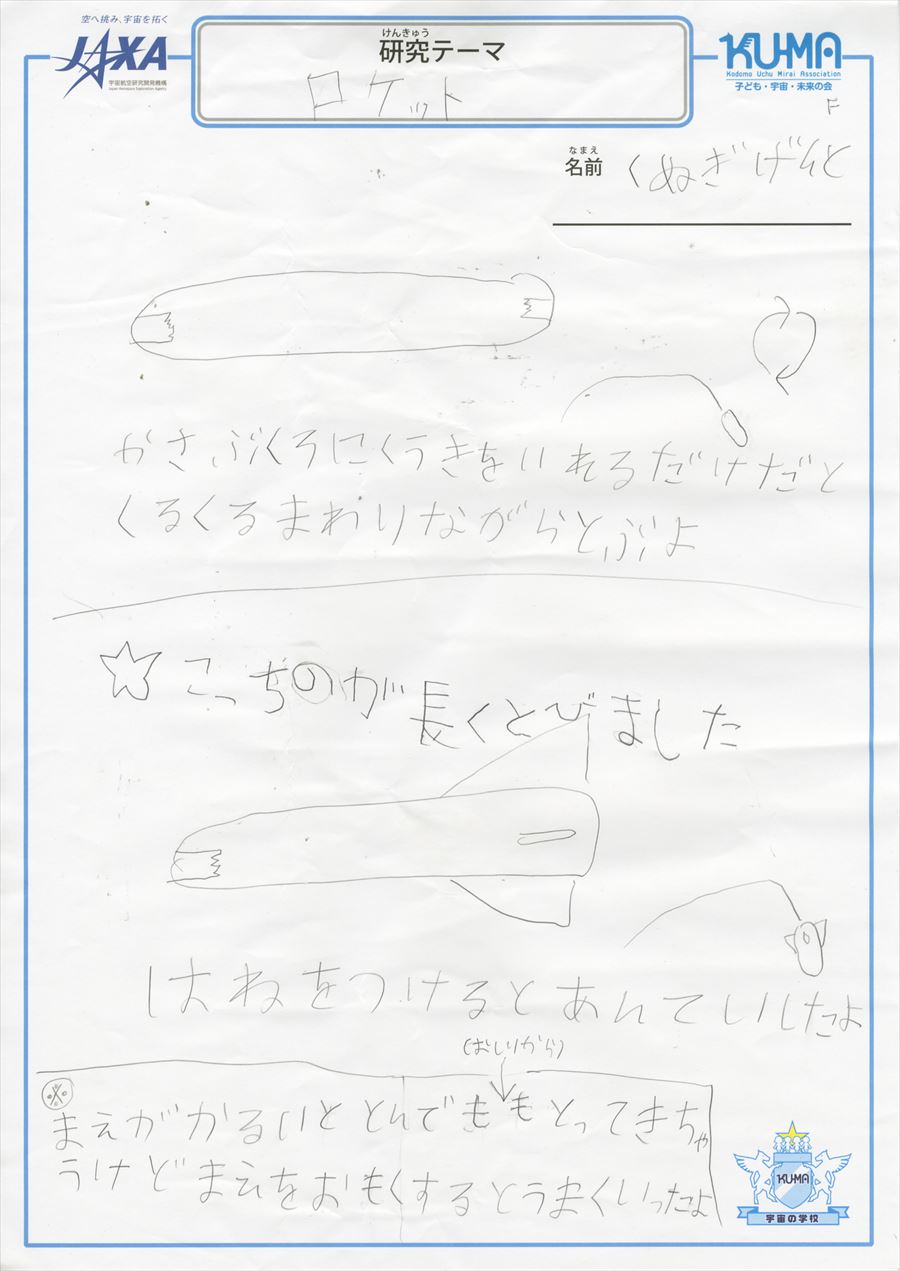 空へ挑み、宇宙を拓く
JAXA
宇宙航空研究開発機構
Japan Aerospace Exploration Agency
けんきゅう
研究テーマ
ロケット
KU-MA
Kodomo Uchu Mirai Association
子ども・宇宙・未来の会
F
なまえ
名前 くぬぎげんと
かさぶくろにくうきをいれるだけだと
くるくるまわりながらとぶよ
☆こっちのが長くとびました
はねをつけるとあんていしたよ
(おしりから)
※
まえがかるいととんでももどってきちゃ
うけどまえをおもくするとうまくいったよ
KU-MA
宇宙の学校